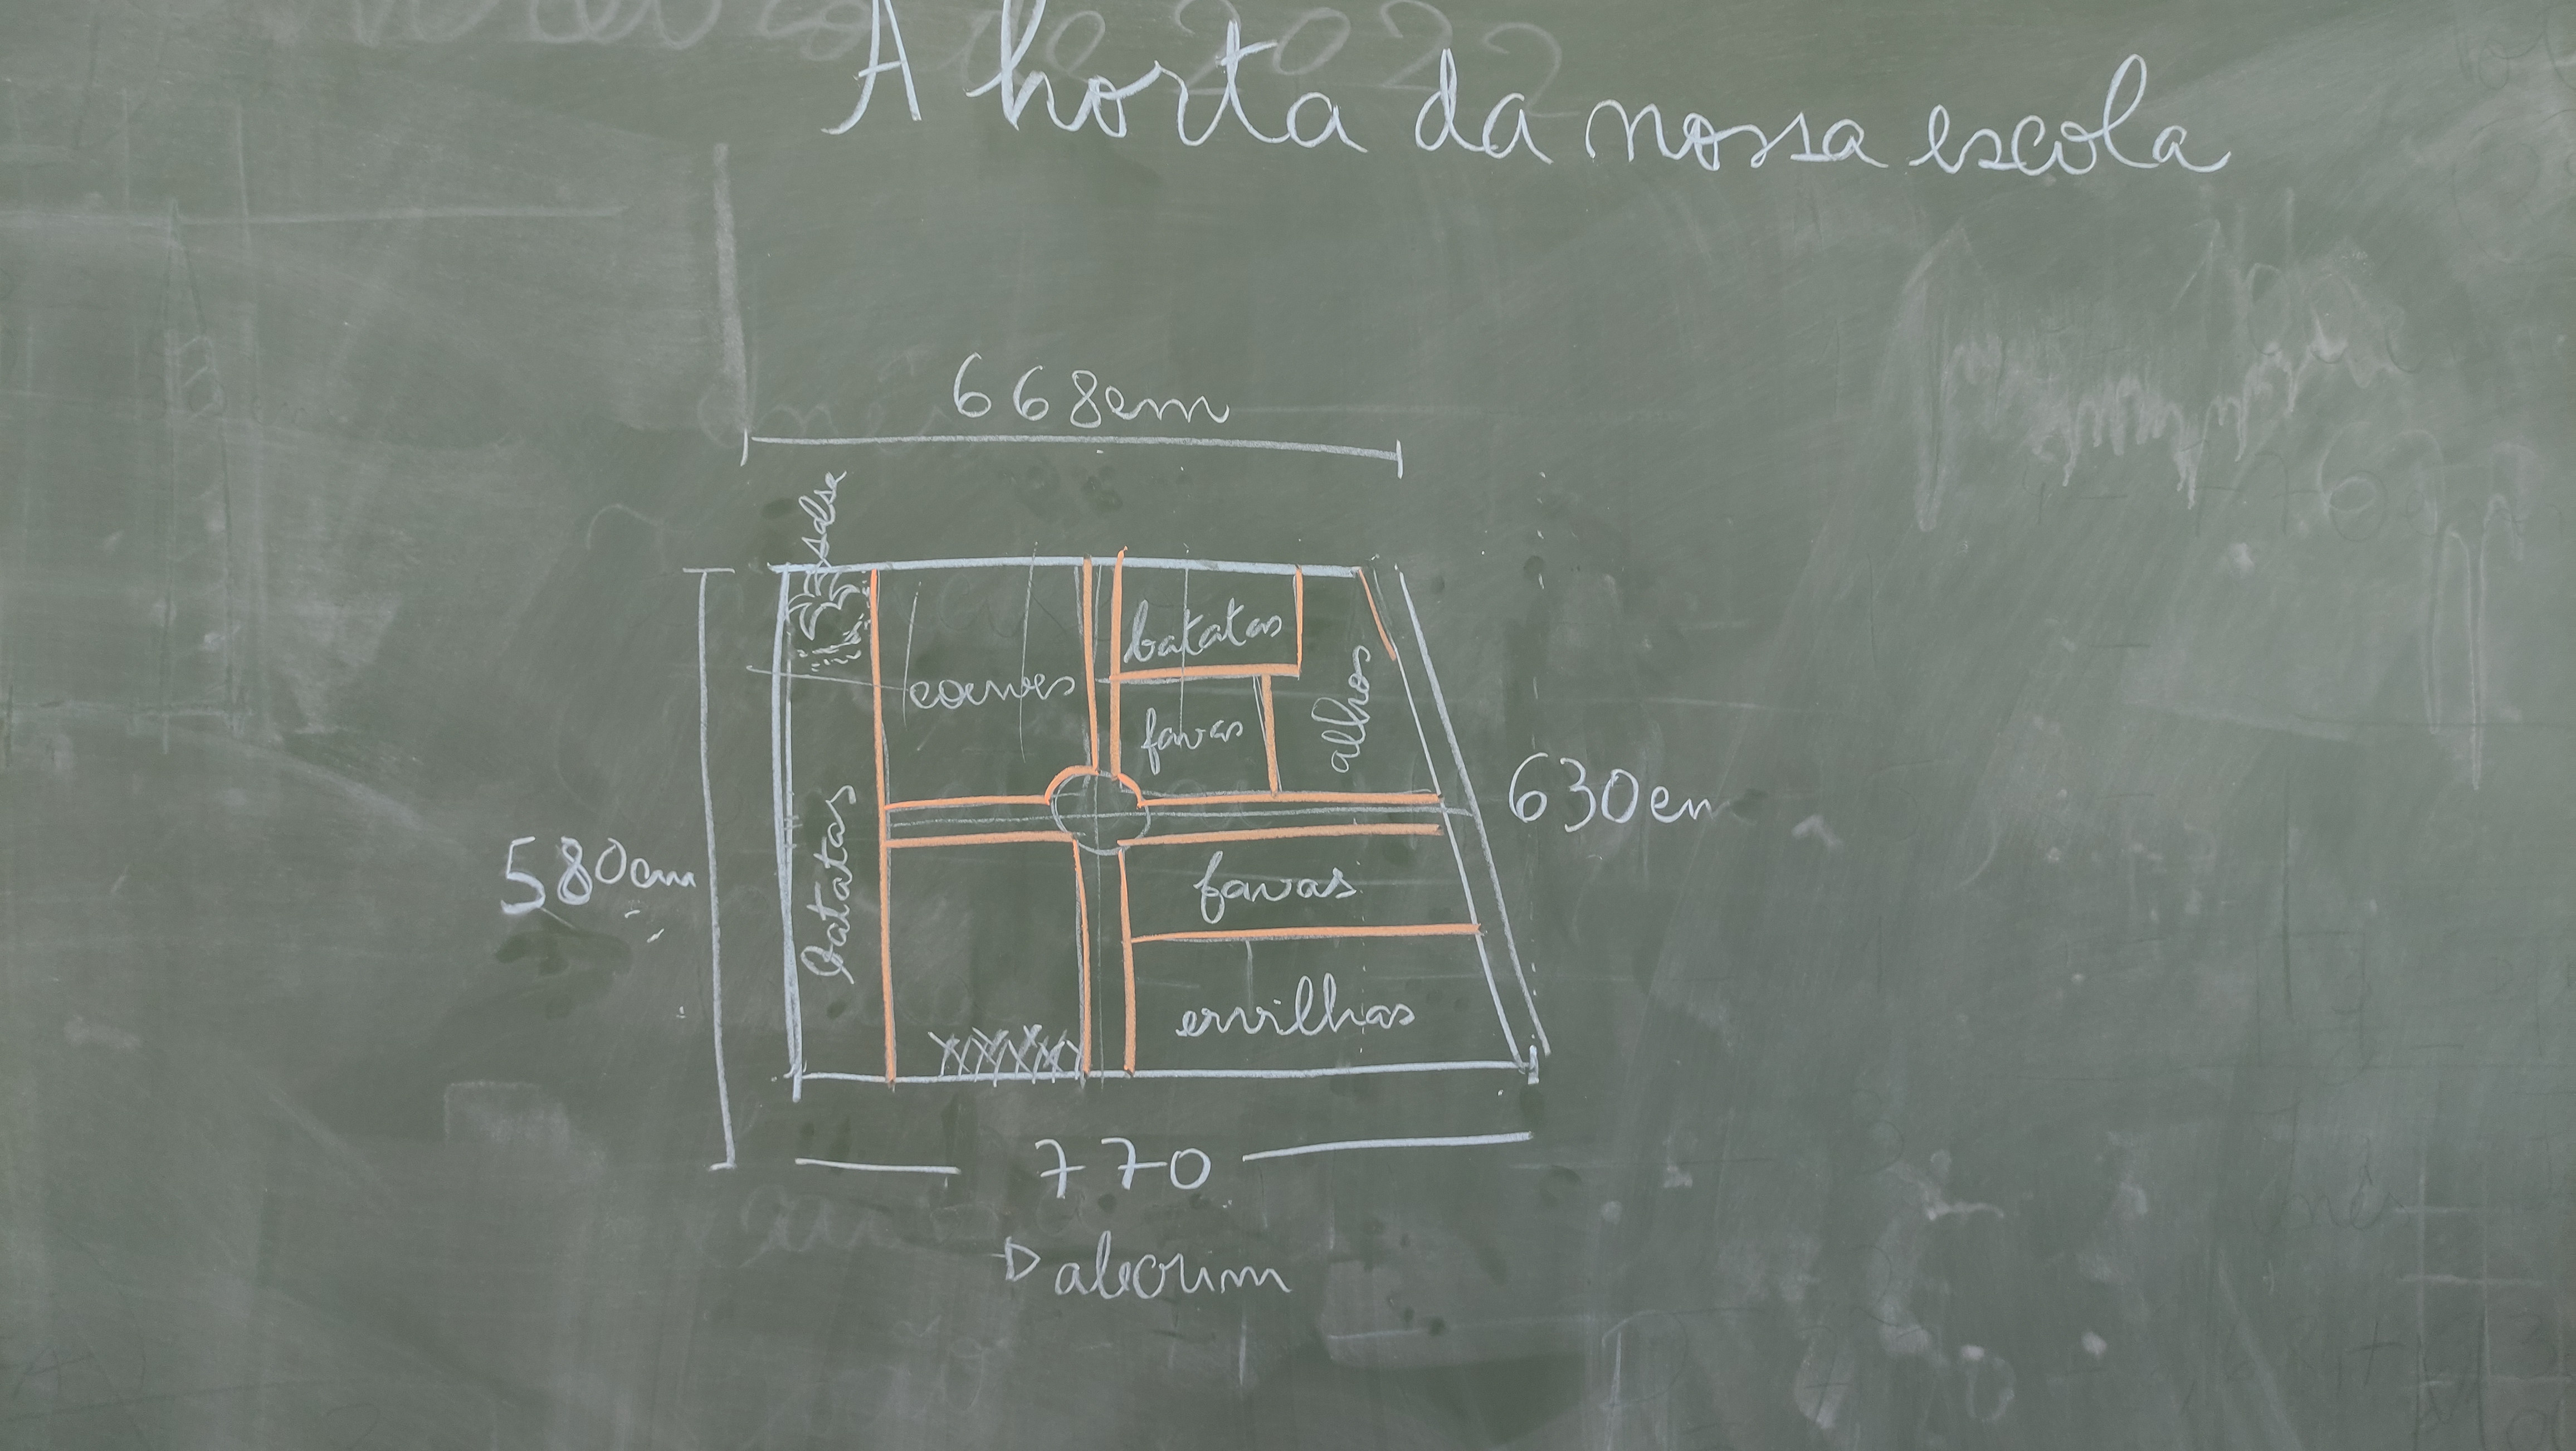 de 2022
A horta da nossa escola
668cm
salsa
batatas
couves
favas
alhos
630cm
580cm
batatas
favas
ervilhas
770
Dalecrim